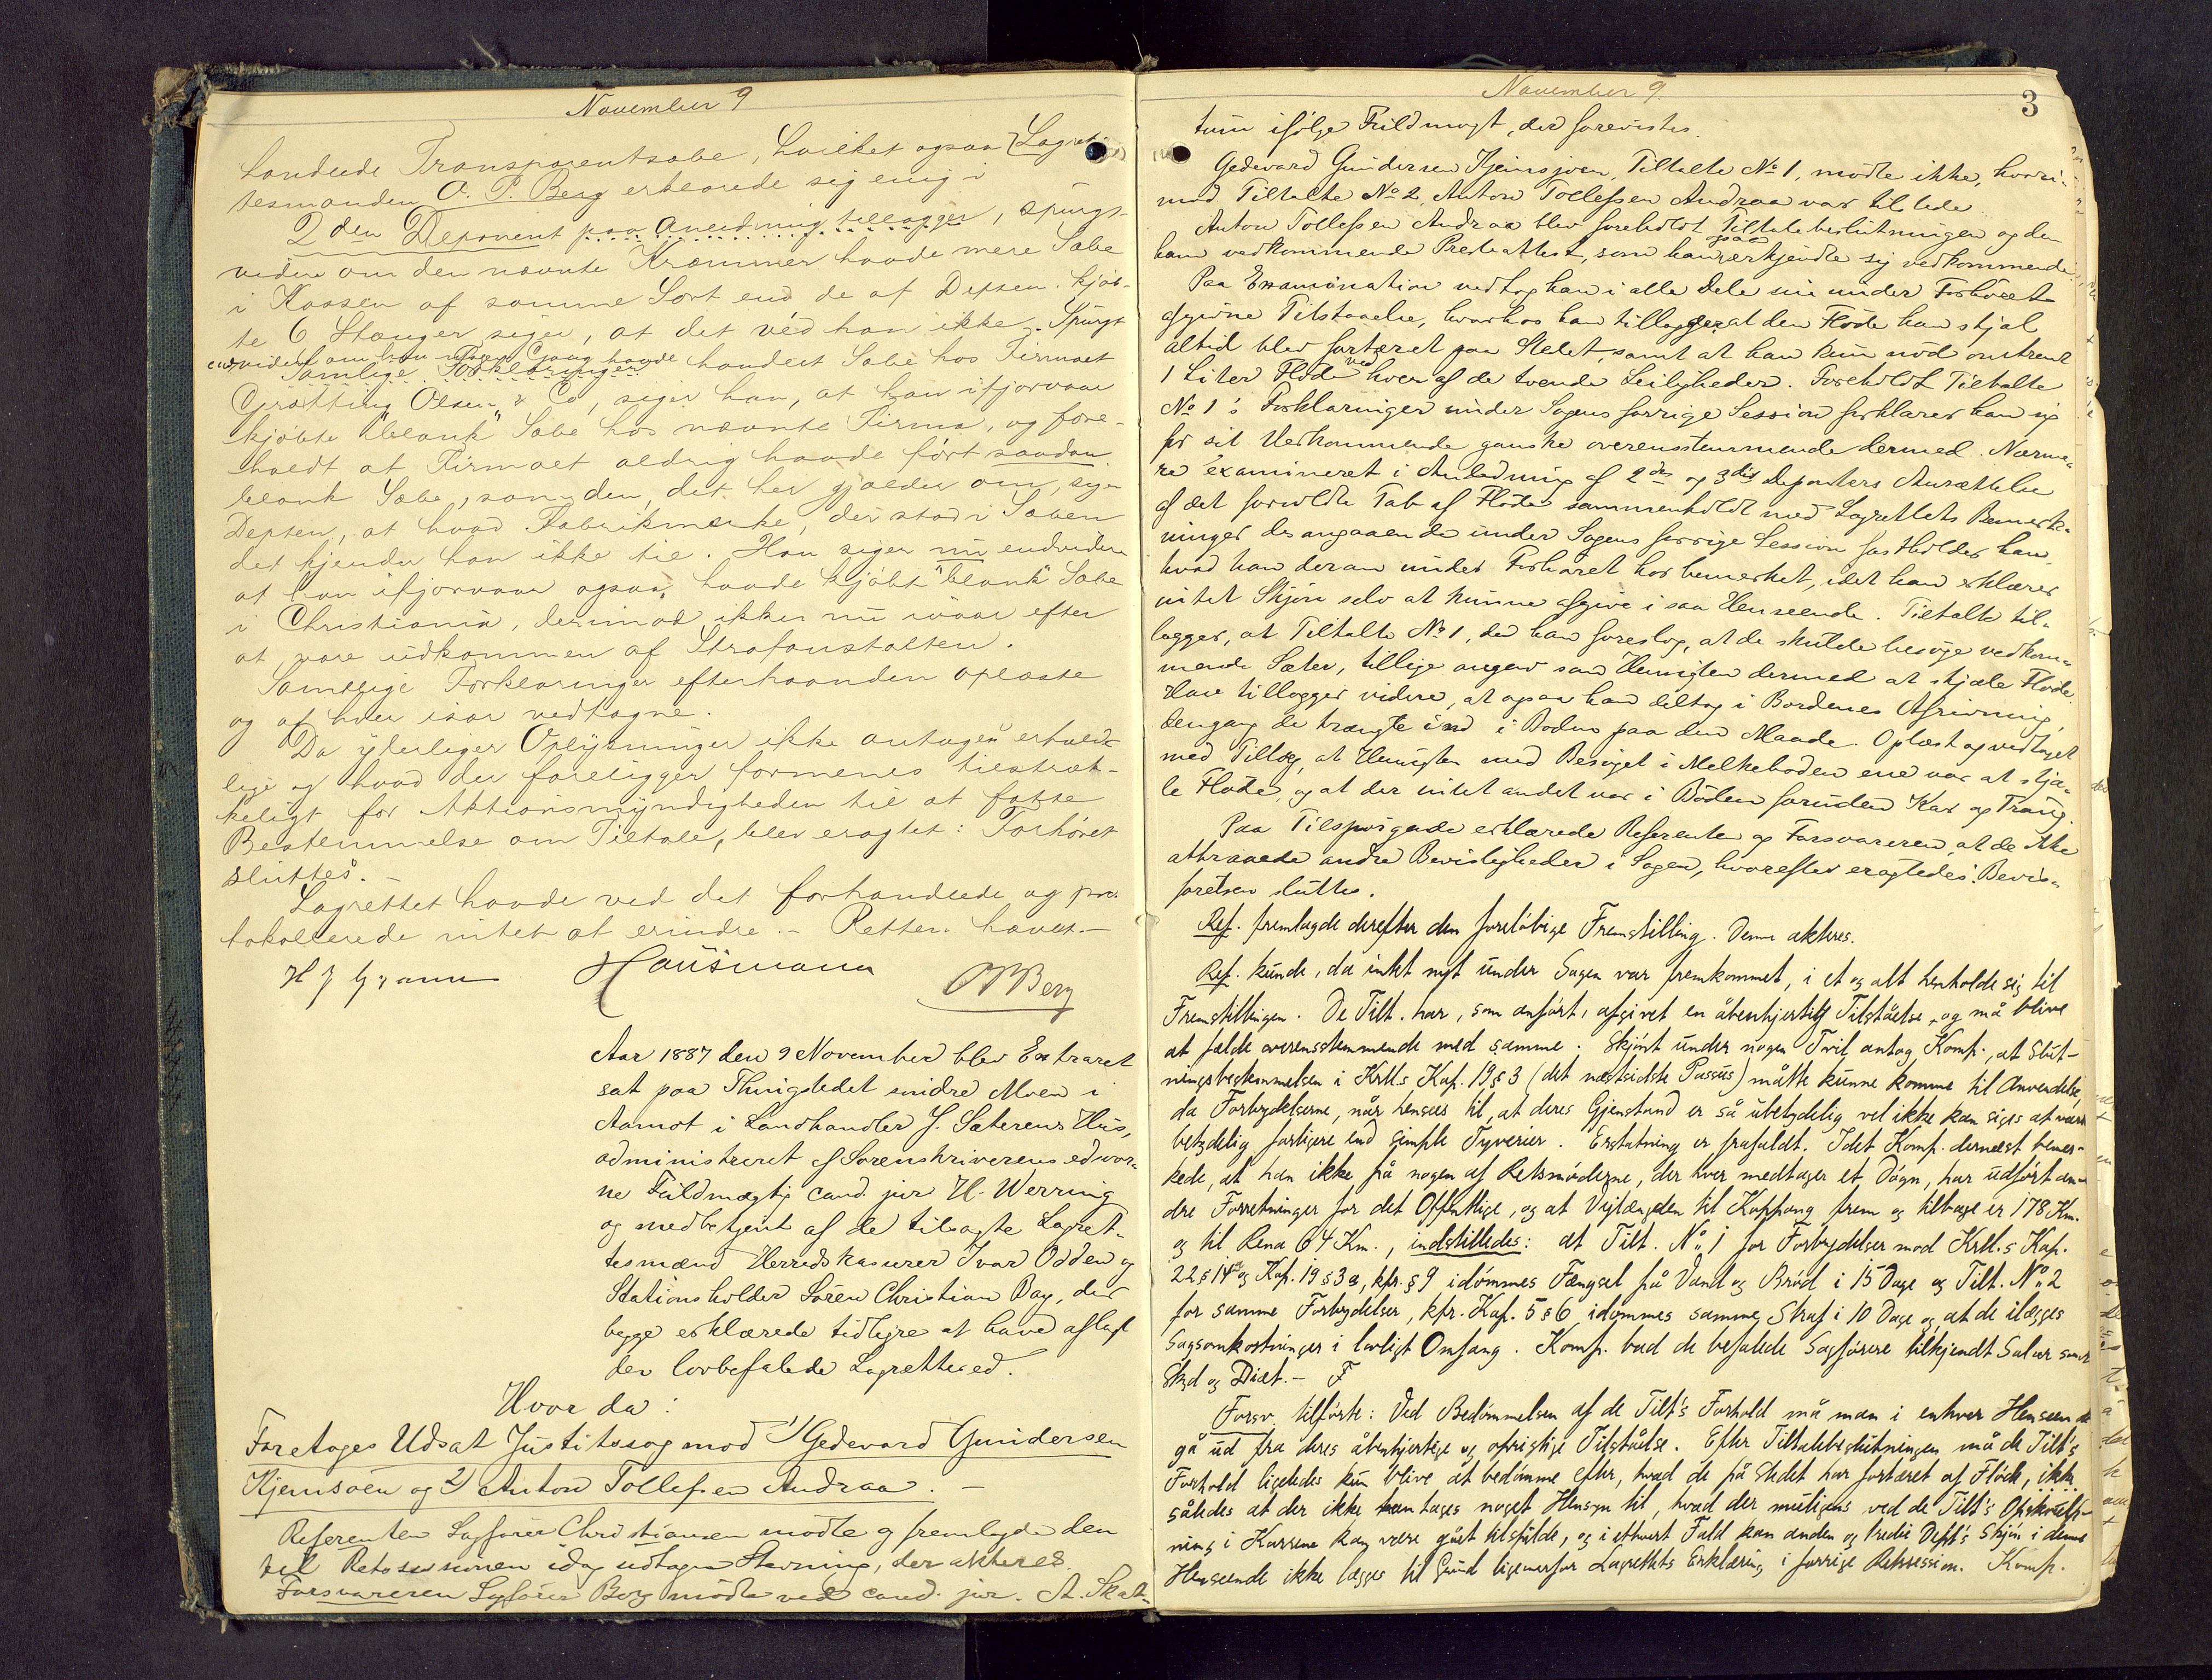 November 9
handlede Transparentsæbe, hvilket ogsaa Lagret-
tesmanden O. P. Berg erklærede sig enig i
2den Deponent paa Anledning tillægger, spurgt
videre om den nævnte Kræmmer havde mere Sæbe
i Kassen af samme Sort end de af Depten. kjøb-
te 6 Stænger siger, at det véd han ikke. Spurgt
endvidere om han nogen Gang havde handlet Sæbe hos Firmaet
Samtlige Forklaringer
Grøtting Olsen & Co, siger han, at han ifjorvaar
kjøbte "blank" Sæbe hos nævnte Firma, og fore-
holdt at Firmaet aldrig havde ført saadan
blank Sæbe, som den, det her gjælder om, siger
Depten, at hvad Fabrikmærke, der stod i Sæben
det kjender han ikke til. Han siger nu endvidere
at han ifjorvaar ogsaa havde kjøbt "blank" Sæbe
i Christiania, derimod ikke nu ivaar efter
at være udkommen af Strafanstalten.
Samtlige Forklaringer efterhaanden oplæste
og af hver især vedtagne.
Da yderligere Oplysninger ikke antages erholde-
lige og hvad der foreligger formenes tilstræk-
keligt for Aktionsmyndigheden til at fatte
Bestemmelse om Tiltale, blev eragtet: Forhøret
sluttes.
Lagrettet havde ved det forhandlede og pro-
tokollerede intet at erindre. - Retten hævet. -
Hausmann
OPBerg
Aar 1887 den 9 November blev Extraret
sat paa Thingstedet nidre Moen i
Aamot i Landhandler J. Sæterens Hus,
administreret af Sorenskriverens edsvor-
ne Fuldmægtig cand. jur H. Werring
og medbetjent af de tilsagte Lagret-
tesmænd Herredskasserer Ivar Odden og
Stationsholder Søren Christian Bay, der
begge erklærede tidligre at have aflagt
den lovbefalede Lagretteed.
Hvor da:
Foretoges Udsat Justitssag mod 1/ Gedevard Gundersen
Hjemsøen og 2/ Anton Tollefsen Andraa. -
Referenten Sagfører Christiansen mødte og fremlagde den
til Retssessionen idag udtagne Stævning, der akteres.
Forsvareren Sagfører Berg mødte ved cand. jur. A. Skat-
November 9.
3
tum ifølge Fuldmagt, der forevistes.
Gedevard Gundersen Hjemsjoen, Tiltalte No 1, mødte ikke, hvori-
mod Tiltalte No 2, Anton Tollefsen Andraa var tilstede
Anton Tollefsen Andraa blev foreholdt Tiltalebeslutningen og den
ham vedkommende Presteattest, som han ogsaa erkjendte sig vedkommende.
Paa Examination vedtog han i alle Dele sin under Forhøret
afgivne Tilstaaelse, hvorhos han tillægger at den Fløde han stjal
altid blev fortæret paa Stedet, samt at han kun nød omtrent
1 Liter Fløde ved hver af de tvende Leiligheder. Foreholdt Tiltalte
No 1's Forklaringer under Sagens forrige Session forklarer han sig
for sit Vedkommende ganske overensstemmende dermed. Nærme-
re examineret i Anledning af 2den og 3die Deponters Ansættelse
af det forvoldte Tab af Fløde sammenholdt med Lagrettets Bemærk-
ninger desangaaende under Sagens forrige Session fastholder han
hvad han derom under Forhøret har bemerket, idet han erklærer
intet Skjøn selv at kunne afgive i saa Henseende. Tiltalte til-
lægger, at Tiltalte No 1, der han foreslog, at de skulde besøge vedkom-
mende Sæter, tillige angav som Hensigten dermed at stjæle Fløde.
Han tillægger videre, at ogsaa han deltog i Bordenes Afrivning,
dengang de trængte ind i Boden paa den Maade. Oplæst og vedtaget
med Tillæg, at Hensigten med Besøget i Melkeboden ene var at stjæ-
le Fløde, og at der intet andet var i Boden foruden Kar og Traug.
Paa Tilspørgende erklærede Referenten og Forsvareren, at de ikke
attraaede andre Bevisligheder i Sagen, hvorefter eragtedes: Bevis-
førelsen sluttes.
Ref. fremlagde derefter den foreløbige Fremstilling. Denne akteres.
Ref. kunde, da intet nyt under Sagen var fremkommet, i et og alt henholde sig til
Fremstillingen. De Tilt. har, som anført, afgivet en åbenhjertig Tilståelse, og må blive
at fælde overensstemmende med samme. Skjønt under nogen Tvil antog Komp., at Slut-
ningsbestemmelsen i Krll.s Kap. 19 § 3 (det næstsidste Passus) måtte kunne komme til Anvendelse,
da Forbrydelserne, når henses til, at deres Gjenstand er så ubetydelig vel ikke kan siges at være
betydelig farligere end simple Tyverier. Erstatning er frafaldt. Idet Komp. dernæst bemær-
kede, at han ikke på nogen af Retsmøderne, der hver medtager et Døgn, har udført an-
dre Forretninger for det Offentlige, og at Vejlængden til Koppang frem og tilbage er 178 Km.
og til Rena 64 Km., indstilledes: at Tilt. No 1 for Forbrydelser mod Krll.s Kap.
22 § 14 og Kap. 19 § 3 a, kfr. § 9 idømmes Fængsel på Vand og Brød i 15 Dage og Tilt. No 2
for samme Forbrydelser, kfr. Kap. 5 § 6 idømmes samme Straf i 10 Dage og at de ilægges
Sagsomkostninger i lovligt Omfang. Komp. bad de befalede Sagførere tilkjendt Salær samt
Skyd og Diæt. -
Forsv. tilførte: Ved Bedømmelsen af de Tilt's Forhold må man i enhver Henseende
gå ud fra deres åbenhjertige og oprigtige Tilståelse. Efter Tiltalebeslutningen må de Tilt's
Forhold ligeledes kun blive at bedømme efter, hvad de på Stedet har fortæret af Fløde, ikke
således at der ikke kan tages noget Hensyn til, hvad der muligens ved de Tilt's
ning i Karrene kan være gået tilspilde, og i ethvert Fald kan anden og tredie Dept's Skjøn i denne
Henseende ikke lægges til Grund ligeoverfor Lagrettets Erklæring i forrige Retssession. Komp.